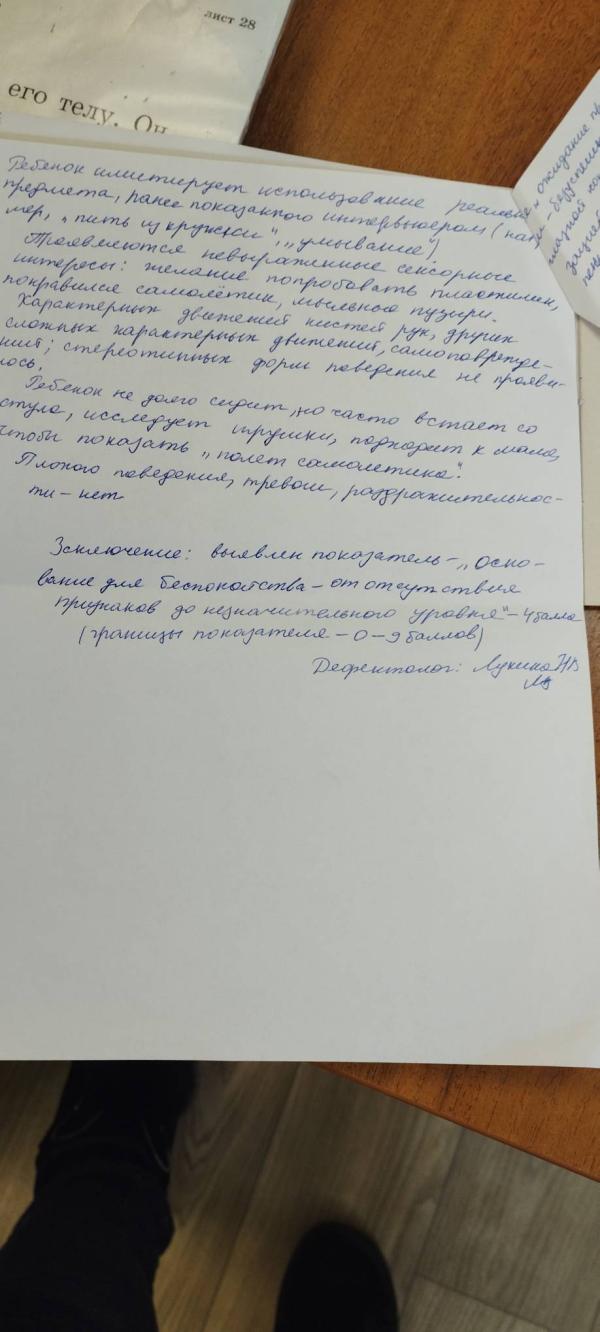 лист 28
его телу. Он
Ребенок имитирует использование реальн
предмета, ранее показанного интервьюером (напр
мер, „пить из кружки", „умывание")
Проявляются невыраженные сенсорные
интересы: желание попробовать пластилин,
понравился самолётик, мыльные пузыри.
Характерных движений кистей рук, других
сложных характерных движений, самоповрежде-
ний; стереотипных форм поведения не прояви-
лось.
Ребенок не долго сидит, но часто встает со
стула, исследует игрушки, подходит к маме,
чтобы показать „полет самолетика".
Плохого поведения, тревоги, раздражительнос-
ти – нет
Заключение: выявлен показатель – „Осно-
вание для беспокойства – от отсутствия
признаков до незначительного уровня" – 4 балла
(границы показателя – 0 – 9 баллов)
Дефектолог: Лукина НВ
ожидание